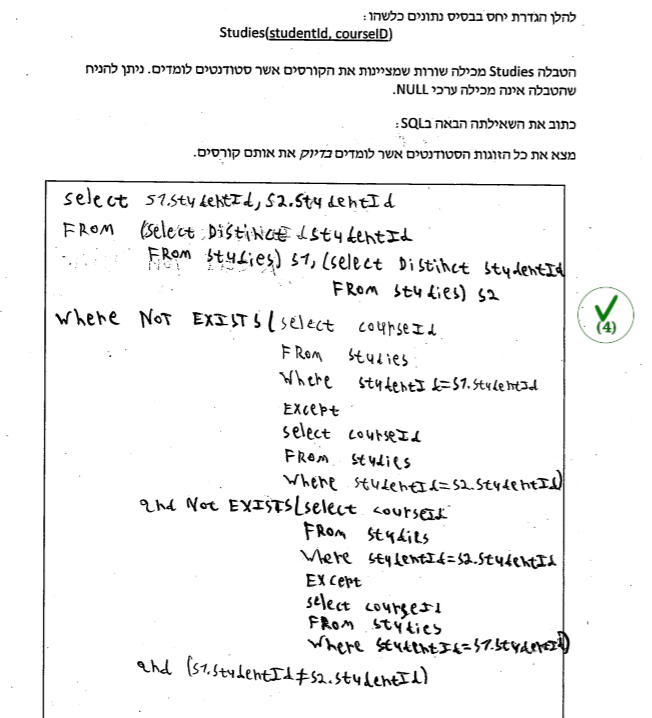 להלן הגדרת יחס בבסיס נתונים כלשהו:
Studies(studentId, courseID)
הטבלה Studies מכילה שורות שמציינות את הקורסים אשר סטודנטים לומדים. ניתן להניח
שהטבלה אינה מכילה ערכי NULL.
כתוב את השאילתה הבאה בSQL:
מצא את כל הזוגות הסטודנטים אשר לומדים בדיוק את אותם קורסים.
select S1.studentId, S2.studentId
FROM (select Distinct studentId
FROM studies) S1, (select Distinct studentId
FROM studies) S2
where NOT EXISTS (select courseId
FROM studies
Where studentId=S1.studentId
Except
select courseId
FROM studies
where studentId=S2.studentId)
and Not EXISTS (select courseId
FROM studies
where studentId=S2.studentId
EXcept
select courseId
FROM studies
where studentId=S1.studentId)
and (S1.studentId≠S2.studentId)
(4)